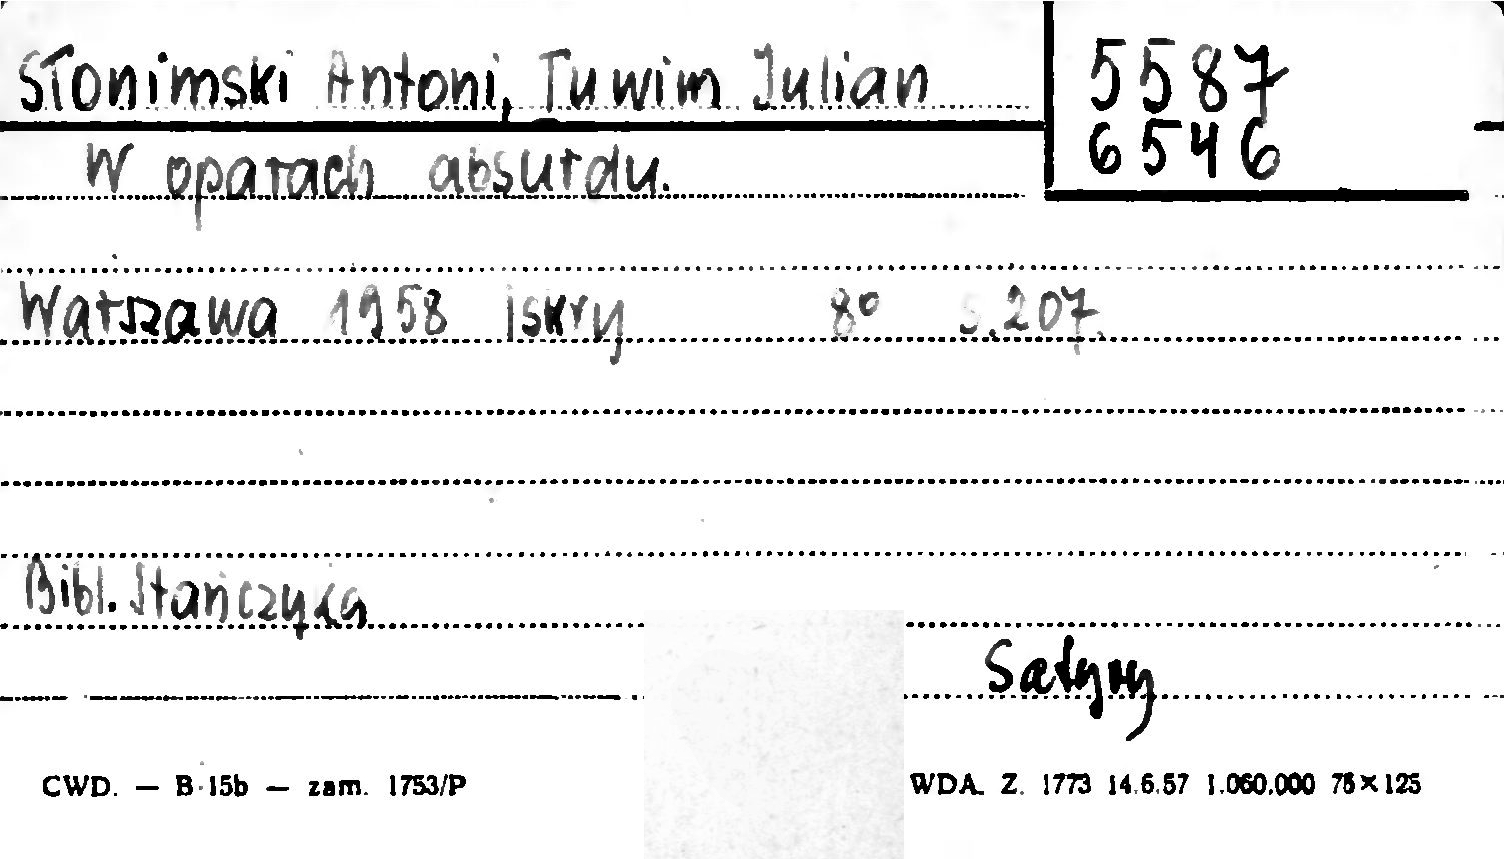 Słonimski Antoni, Tuwim Julian
5587
6546
W oparach absurdu.
Warszawa 1958 iskry 8° s. 207.
Bibl. Stańczyka
Satyry
CWD. — B-15b — zam. 1753/P
WDA. Z. 1773 14.6.57 1.060.000 75×125